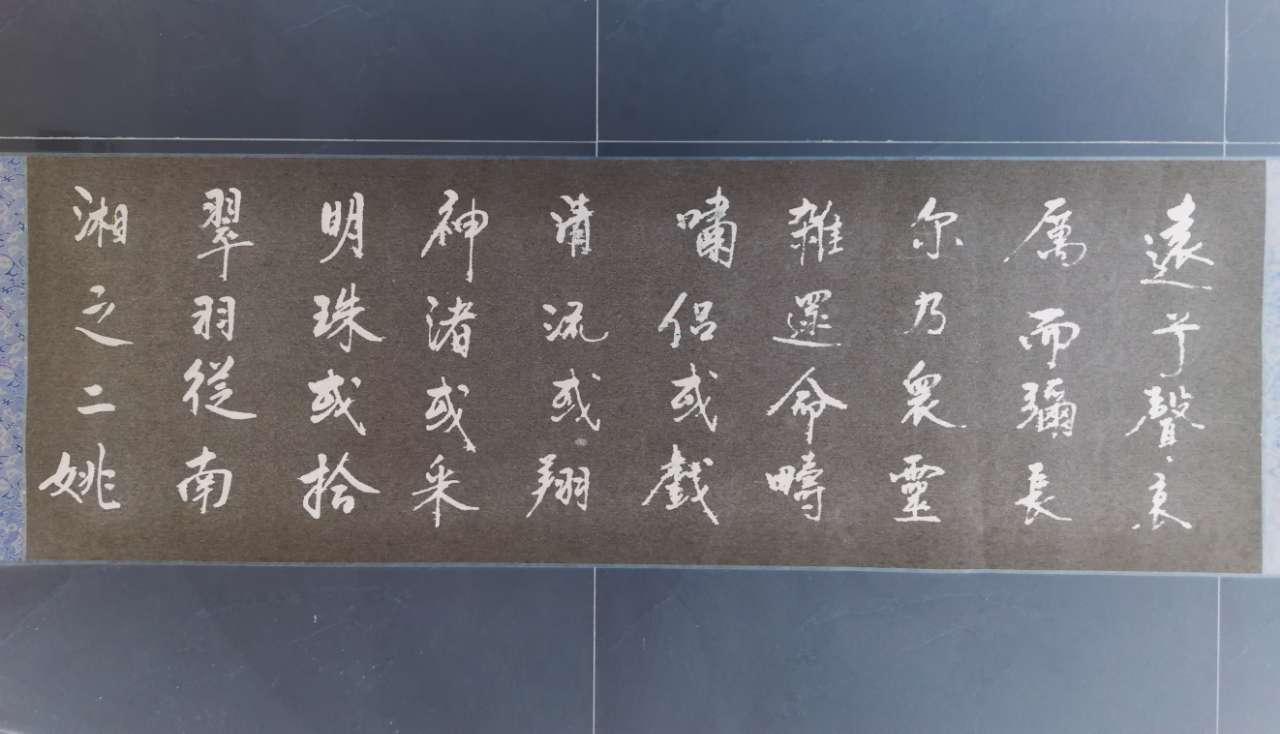 遠兮聲哀
厲而彌長
尔乃衆靈
雜遝命疇
嘯侶或戲
清流或翔
神渚或采
明珠或拾
翠羽從南
湘之二姚